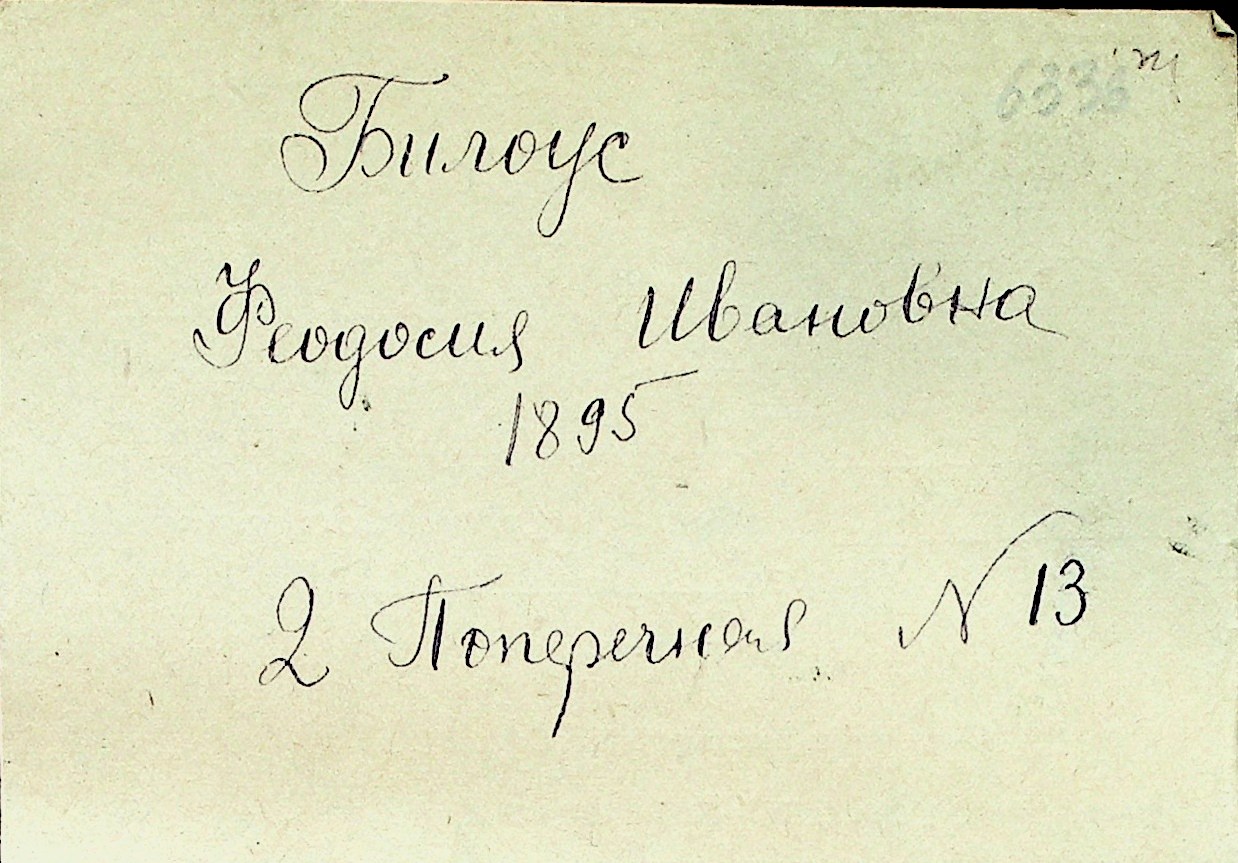 Билоус
Феодосия Ивановна
1895
2 Поперечная N 13